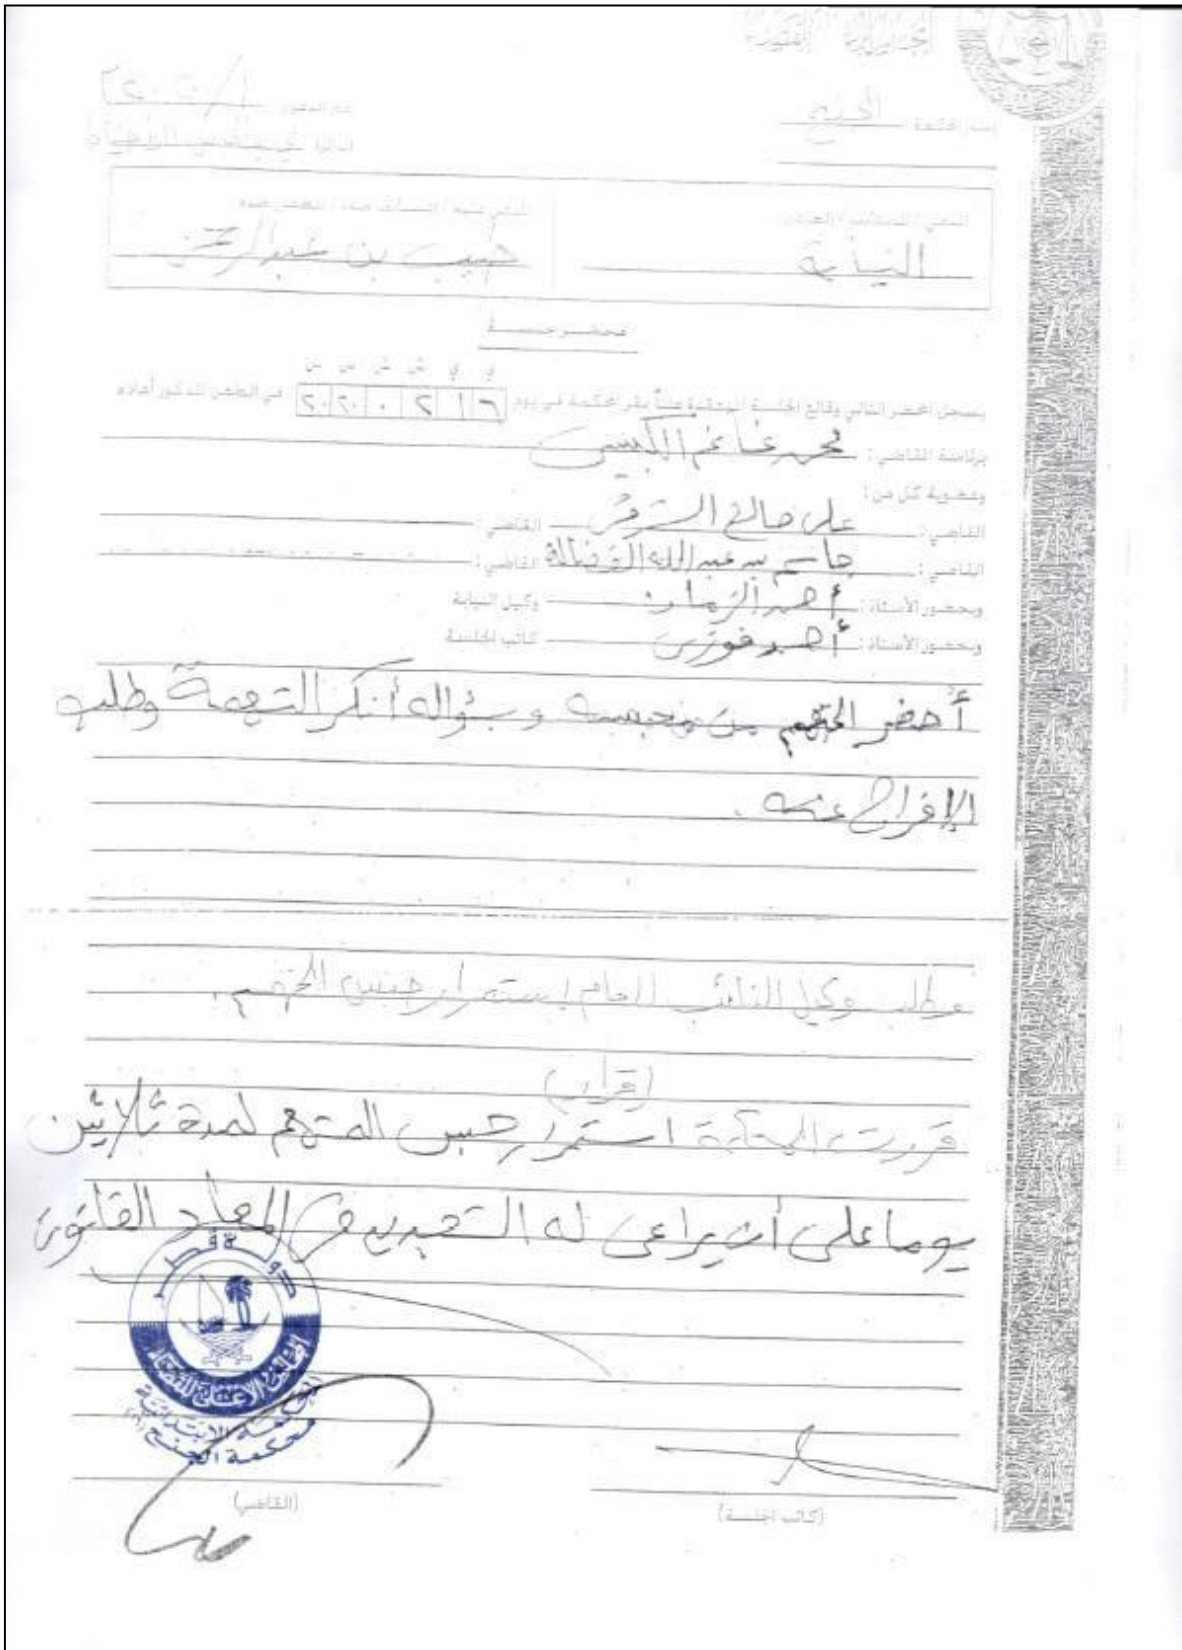 المجلس الأعلى للقضاء
اسم المحكمة : الجنح
رقم الدعوى
الدائرة
المدعي / المستأنف / الطاعن :
النيابة
المدعى عليه / المستأنف ضده / المطعون ضده :
حبيب بن عبدالرحمن
محضر جلسة
ي ي ش ش س س
يسجل المحضر التالي وقائع الجلسة المنعقدة علناً بمقر المحكمة في يوم ١٦ ٠٢ ٢٠٢٠ في الطعن المذكور أعلاه
برئاسة القاضي : محمد غانم الكبيسي
وعضوية كل من :
القاضي : علي صالح القاضي :
القاضي : جاسم بن عبدالله الفضالة القاضي :
وبحضور الأستاذ : أحمد وكيل النيابة
وبحضور الأستاذ : أحمد فوزي كاتب الجلسة
أحضر المتهم من محبسه وبسؤاله أنكر التهمة وطلب
الإفراج عنه .
وطلب وكيل النائب العام استمرار حبس المتهم .
(قرار)
قررت المحكمة استمرار حبس المتهم لمدة ثلاثين
يوما على أن يراعى له التجديد في المعاد القانوني
دولة قطر
المجلس الأعلى للقضاء
المحكمة الابتدائية
محكمة الجنح
(القاضي)
(كاتب الجلسة)